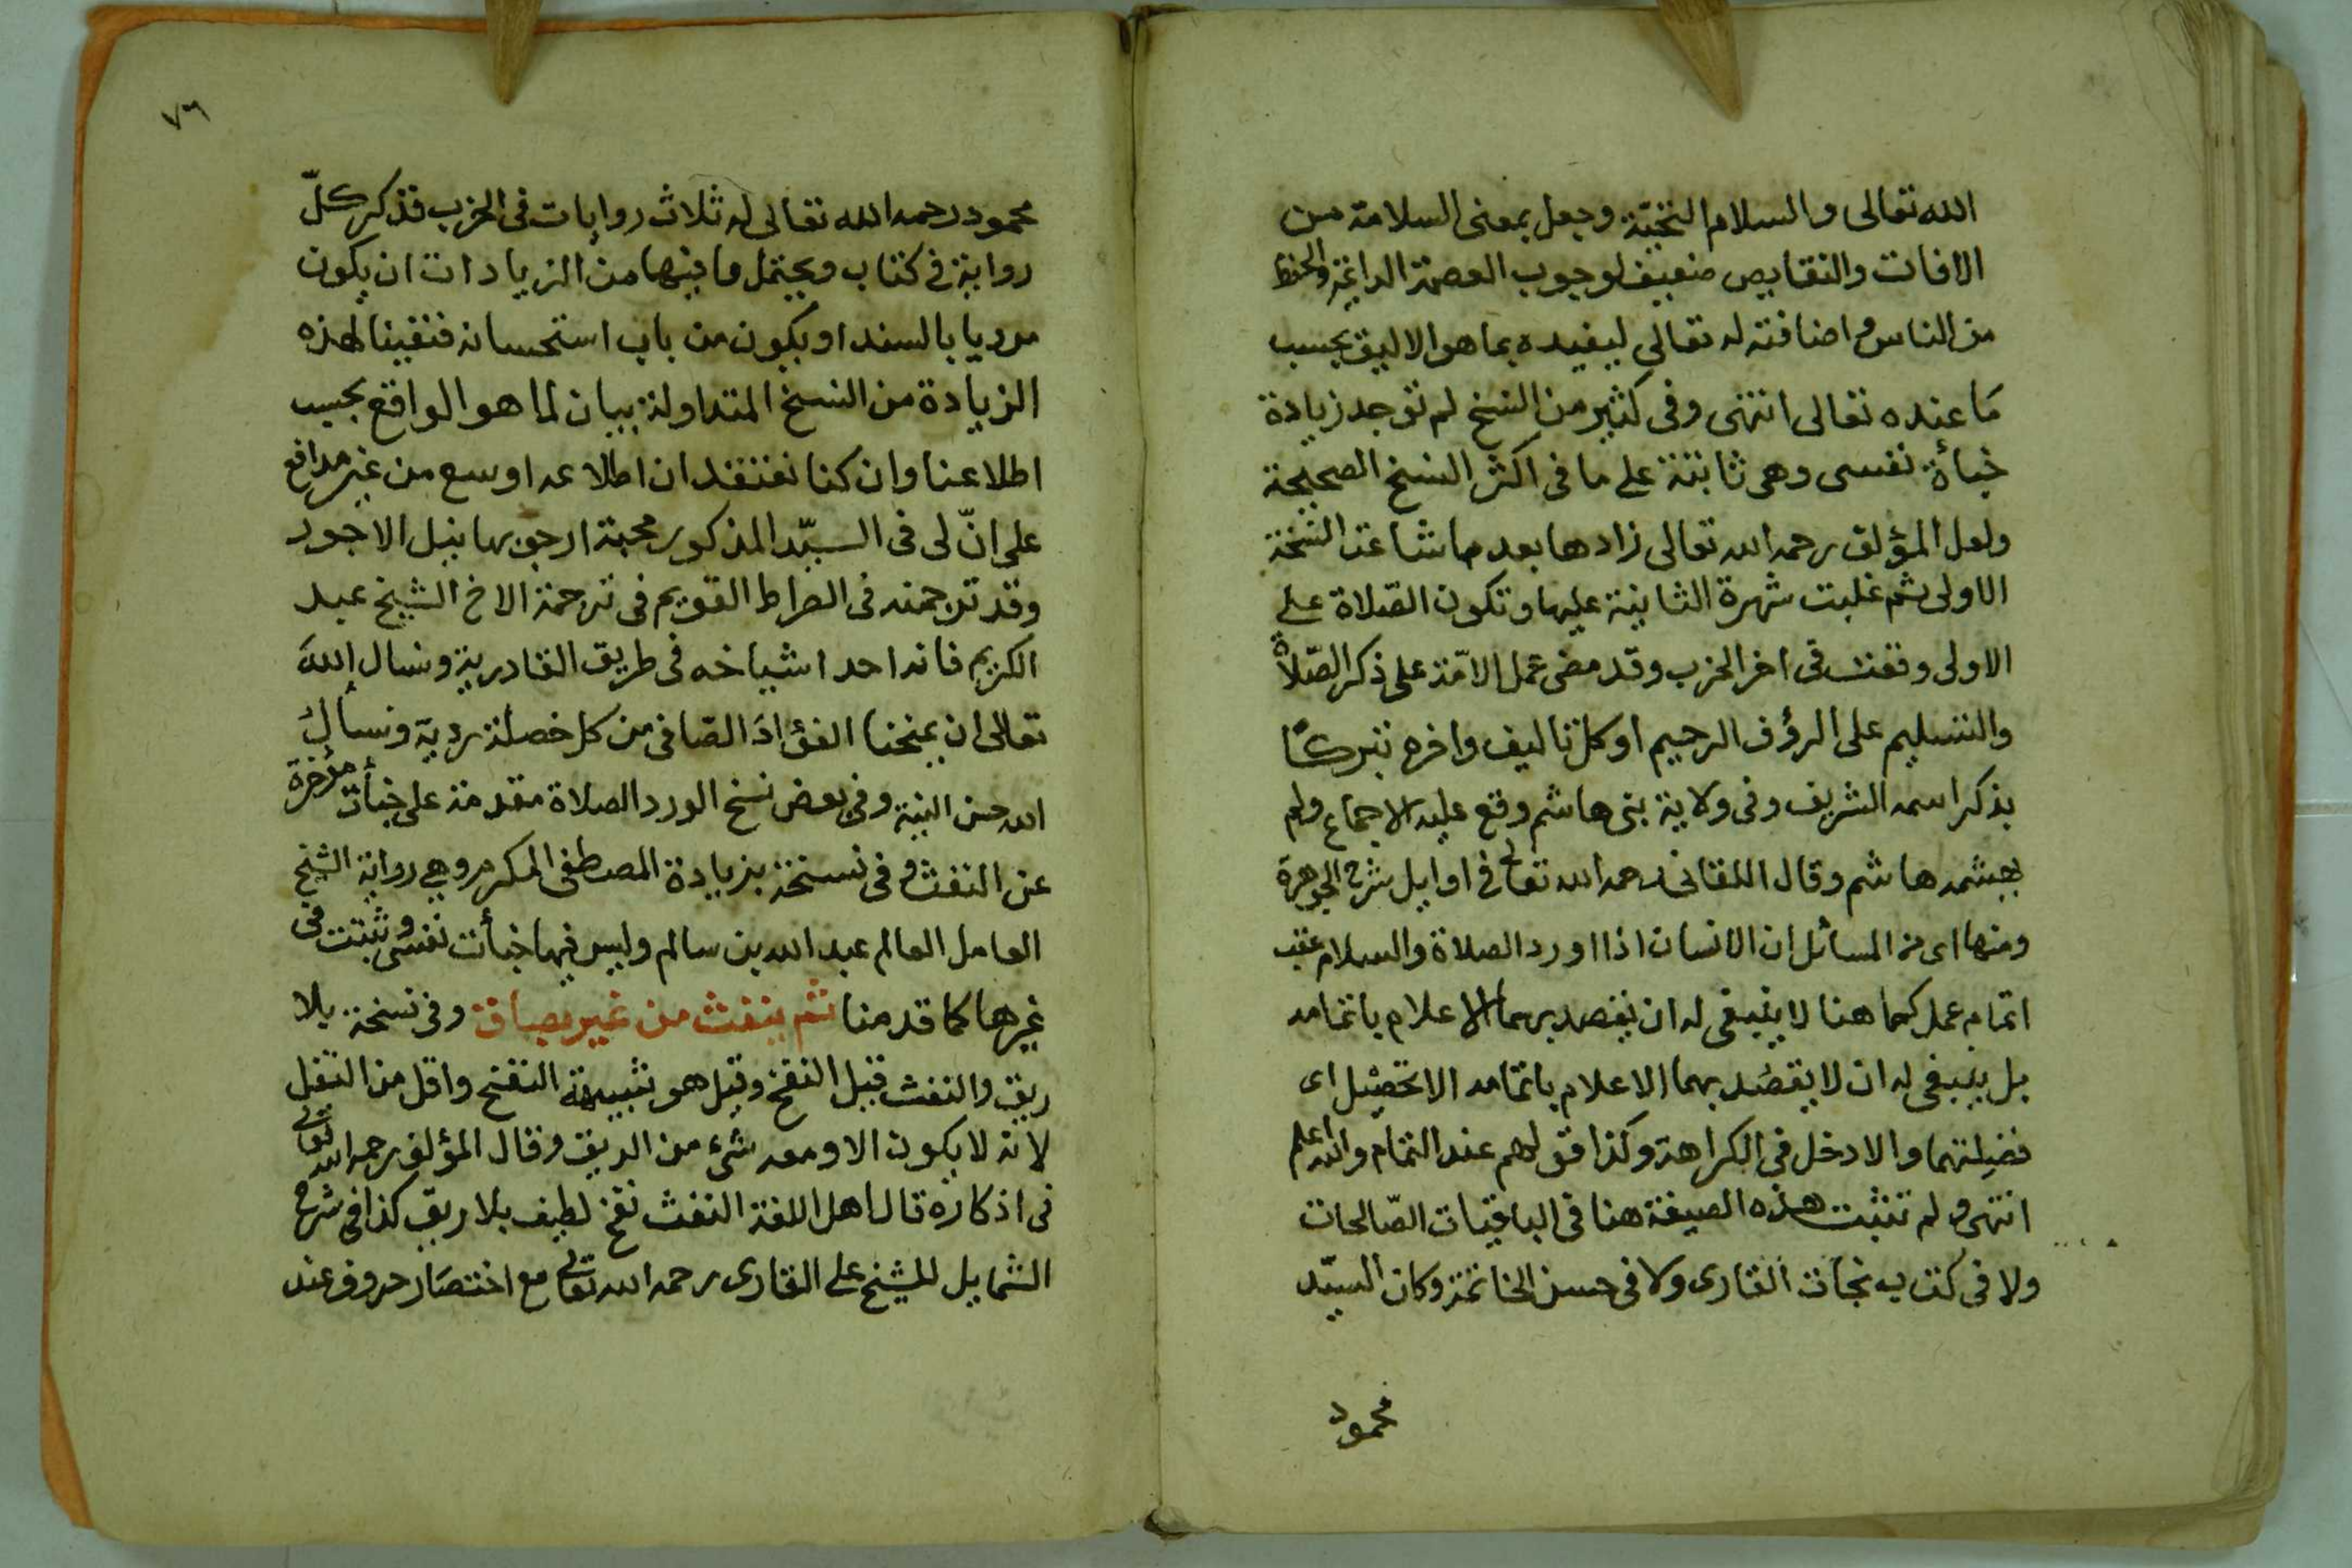 الله تعالى والسلام التحية وجعل بمعنى السلامة من
الافات والنقايص ضعيف لوجوب العصمة الدايمة والحفظ
من الناس واضافته له تعالى ليفيده بما هو الاليق بحسب
ما عنده تعالى انتهى وفى كثير من النسخ لم توجد زيادة
خبأت نفسى وهى ثابتة على ما فى اكثر النسخ الصحيحة
ولعل المؤلف رحمه الله تعالى زادها بعد ما شاعت النسخة
الاولى ثم غلبت شهرة الثانية عليها وتكون الصّلاة على
الاولى وقعت فى اخر الحزب وقد مضى عمل الامّة على ذكر الصّلاة
والتسليم على الرؤف الرحيم اول كل تاليف واخره تبركًا
بذكر اسمه الشريف وفى ولاية بنى هاشم وقع عليه الاجماع ولم
هاشم وقال اللقانى رحمه الله تعالى فى اوايل شرح الجوهرة
ومنها اى من المسائل ان الانسان اذا اورد الصلاة والسلام عقب
اتمام عمل كما هنا لا ينبغى له ان يقصد بهما الاعلام باتمامه
بل ينبغى له ان لا يقصد بهما الاعلام باتمامه الا تحصيل اى
فضيلتهما والا دخل فى الكراهة وكذا قولهم عند التمام والله اعلم
انتهى ولم تثبت هذه الصيغة هنا فى الباقيات الصّالحات
ولا فى كتاب نجات القارى ولا فى حسن الخاتمة وكان السيّد
محمود
٧٦
محمود رحمه الله تعالى له ثلاث روايات فى الحزب فذكر كلّ
رواية فى كتاب ويحتمل ما فيها من الزيادات ان يكون
مرويا بالسند او يكون من باب استحسانه فنفينا لهذه
الزيادة من النسخ المتداولة بيان لما هو الواقع بحسب
اطلاعنا وان كنا نعتقد ان اطلاعه اوسع من غير مدافع
على انّ لى فى السيّد المذكور محبة ارجو بها نيل الاجور
وقد ترجمته فى الصراط القويم فى ترجمة الاخ الشيخ عبد
الكريم فانه احد اشياخه فى طريق القادرية ونسال الله
تعالى ان يمنحنا الفؤاد الصّافى من كل خصلة رديّة ونسأل
الله حسن النية وفى بعض نسخ الورد الصلاة مقدمة على خبأت مؤخرة
عن النفث وفى نسخة بزيادة المصطفى المكرم وهى رواية الشيخ
العامل العالم عبد الله بن سالم وليس فيها خبأت نفسى وثبتت فى
غيرها كما قدمنا ثم ينفث من غير بصاق وفى نسخة بلا
ريق والنفث قيل النفخ وقيل هو شبيه النفخ واقل من التفل
لانه لا يكون الا ومعه شىء من الريق وقال المؤلف رحمه الله تعالى
فى اذكاره قال اهل اللغة النفث نفخ لطيف بلا ريق كذا فى شرح
الشمايل للشيخ على القارى رحمه الله تعالى مع اختصار حروف عند